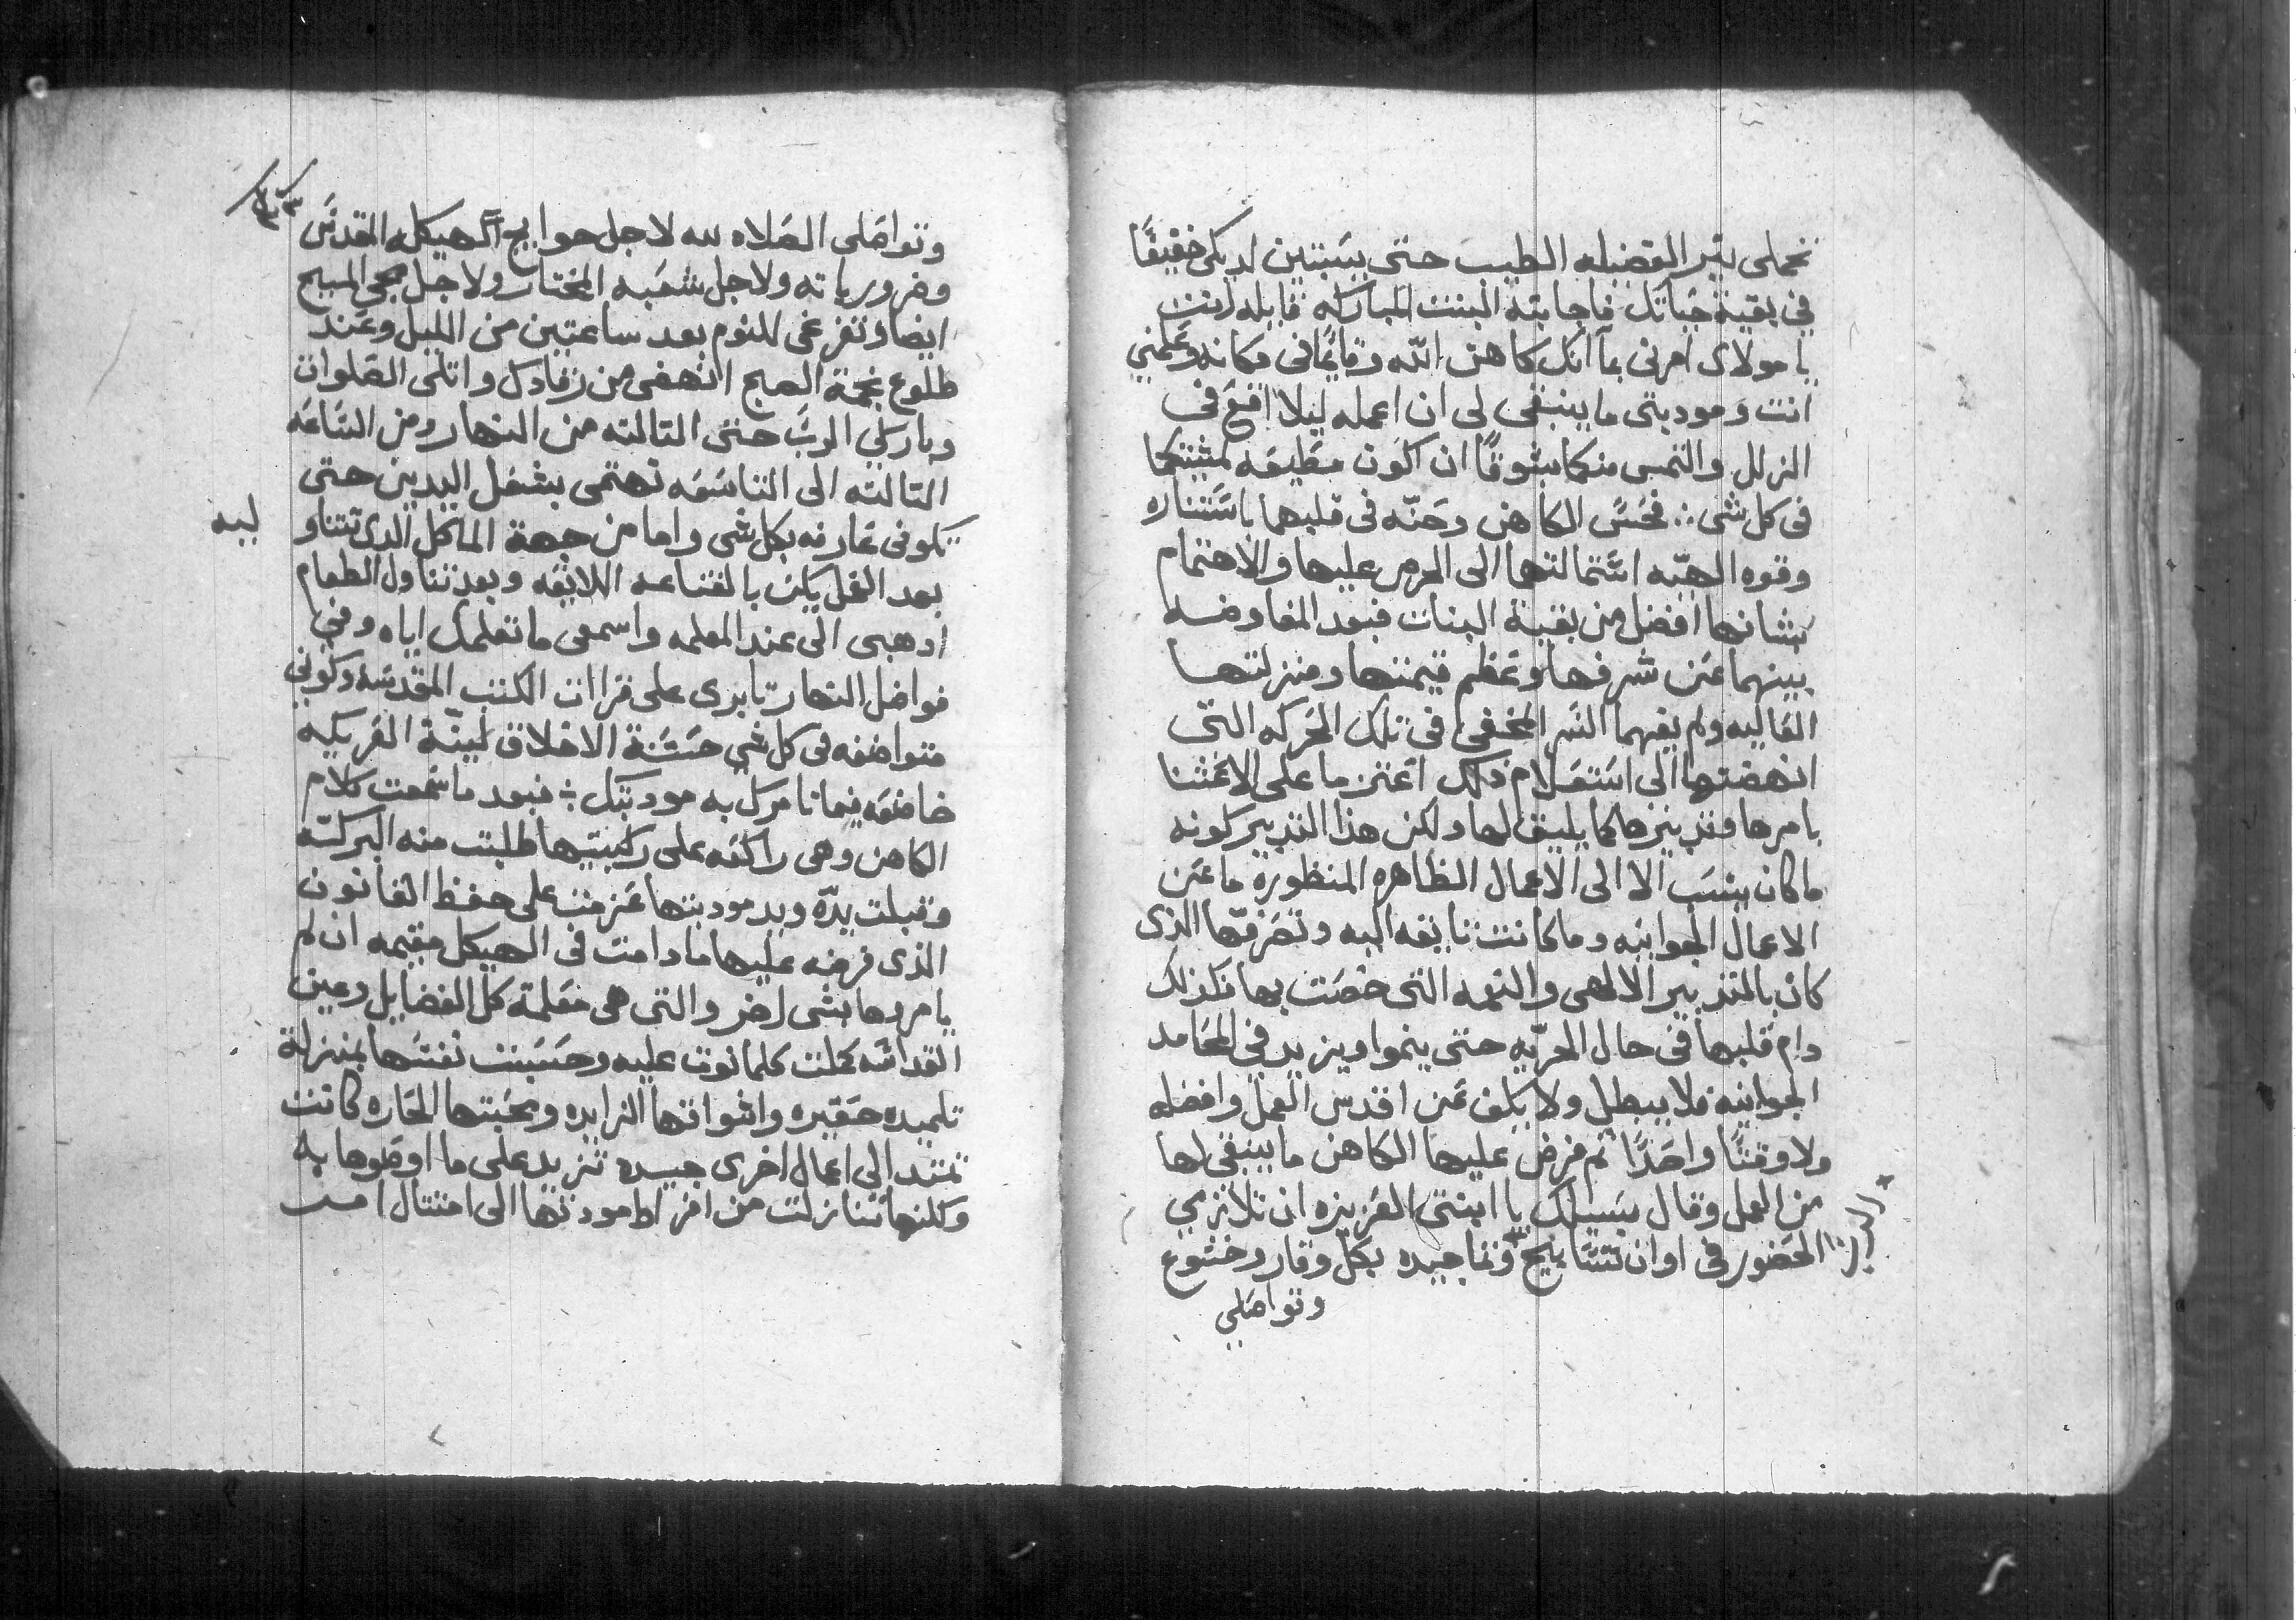 تحملى نير الفضيله الطيب حتى يستبين لديكى خفيفًا
فى بقية حياتك فاجابته البنت المباركه قايله انت
يا مولاى امرنى بما انك كاهن الله وقايمًا فى مكانه وعلمنى
انت ومودبتى ما ينبغى لى ان اعمله ليلا اقع فى
الزلل والتمس منكما بشوقًا ان اكون مطيعه لمشيتكما
فى كل شى ∴ فحس الكاهن وحنّه فى قلبهما باستناره
وقوه الهيّه استمالتهما الى الحرص عليها والاهتمام
بشانها افضل من بقية البنات فبعد المفاوضه
بينهما عن شرفها وعظم قيمتها ومنزلتها
العاليه ولم يفهما السر المخفى فى تلك الحركه التى
انهضتهما الى استعلام ذلك اعتزما على الاعتنا
بامرها وتدبيرها كما يليق لها ولكن هذا التدبير كونه
ما كان ينسب الا الى الاعمال الظاهره المنظورة ما عن
الاعمال الجوانيه وما كانت تايقه اليه وتصرفها الذى
كان بالتدبير الالهى والنعمه التى خصت بها فلذلك
دام قلبها فى حال الحريّه حتى ينموا ويزيد فى المحامد
الجوانيه فلا يبطل ولا يكف عن اقدس العمل وافضله
ولا وقتًا واحدًا ثم فرض عليها الكاهن ما ينبغى لها
من العمل وقال يسيلك يا ابنتى العزيزه ان تلازمى
الحضور فى اوان تسابيح وتماجيده بكل وقار وخشوع
وتواصلى
وتواصلى الصلاه لله لاجل حوايج الهيكله المقدس
وضرورياته ولاجل شعبه المختار ولاجل مجى المسيح
ايضا وتفرغى للنوم بعد ساعتين من الليل وعند
طلوع نجمة الصبح انهضى من رقادك واتلى الصلوات
وباركى الرب حتى التالته من النهار ومن الساعه
التالته الى التاسعه تهتمى بشغل اليدين حتى
تكونى عارفه بكل شى واما من جهة الماكل الذى تتناو
ليه
بعد الفل يكن بالقناعه اللايقه وبعد تناول الطعام
ادهبى الى عند المعلمه واسمعى ما تعلمك اياه وفى
فواضل النهار تابرى على قراات الكتب المقدسه وكونى
متواضعه فى كل شى حسنة الاخلاق لينّة العريكه
خاضعه فيما تامرك به مودبتك ∻ فبعد ما سمعت كلام
الكاهن وهى راكعه على ركبتيها طلبت منه البركه
وقبلت يدّه ويد مودبتها عزمت على حفظ القانون
الذى فرضه عليها ما دامت فى الهيكل مقيمه ان لم
يامروها بشى اخر والتى هى معلمة كل الفضايل وعين
القداسه كملت كلما نوت عليه وحسبت نفسها بمنزلة
تلميده حقيره واشواقها الزايده ومحبتها الحاره كانت
تمتد الى اعمال اخرى جيده تزيد على ما اوصوها به
ولكنها تنازلت من افراط مودتها الى امتتال امر